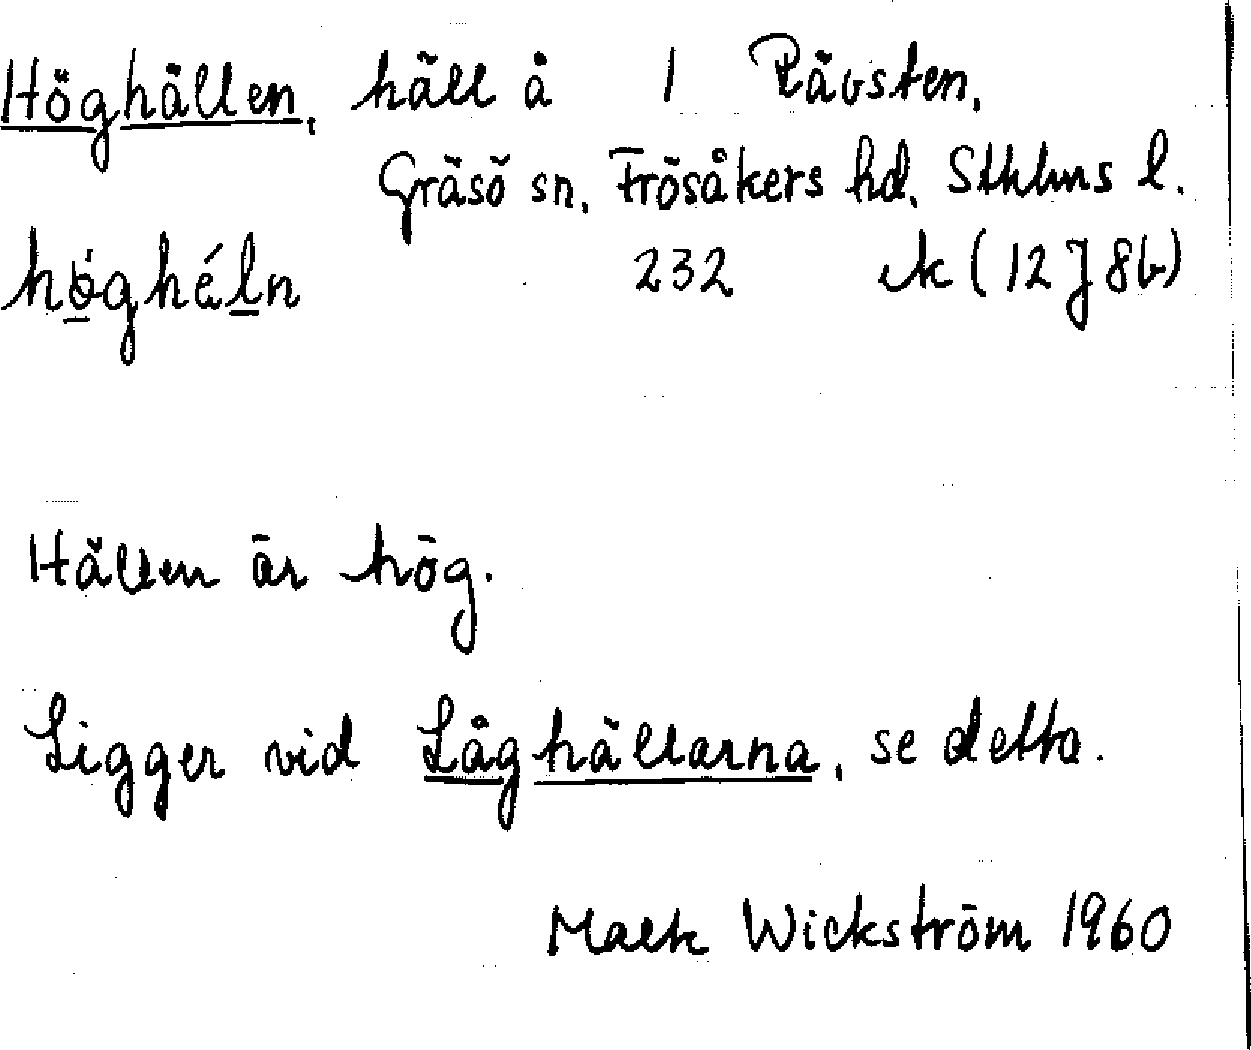 Höghällen, häll å 1 Rävsten,
Gräsö sn, Frösåkers hd, Sthlms l.
höghéln 232 ek (12 J 8b)
Hällen är hög.
Ligger vid Låghällarna, se detta.
Wickström 1960